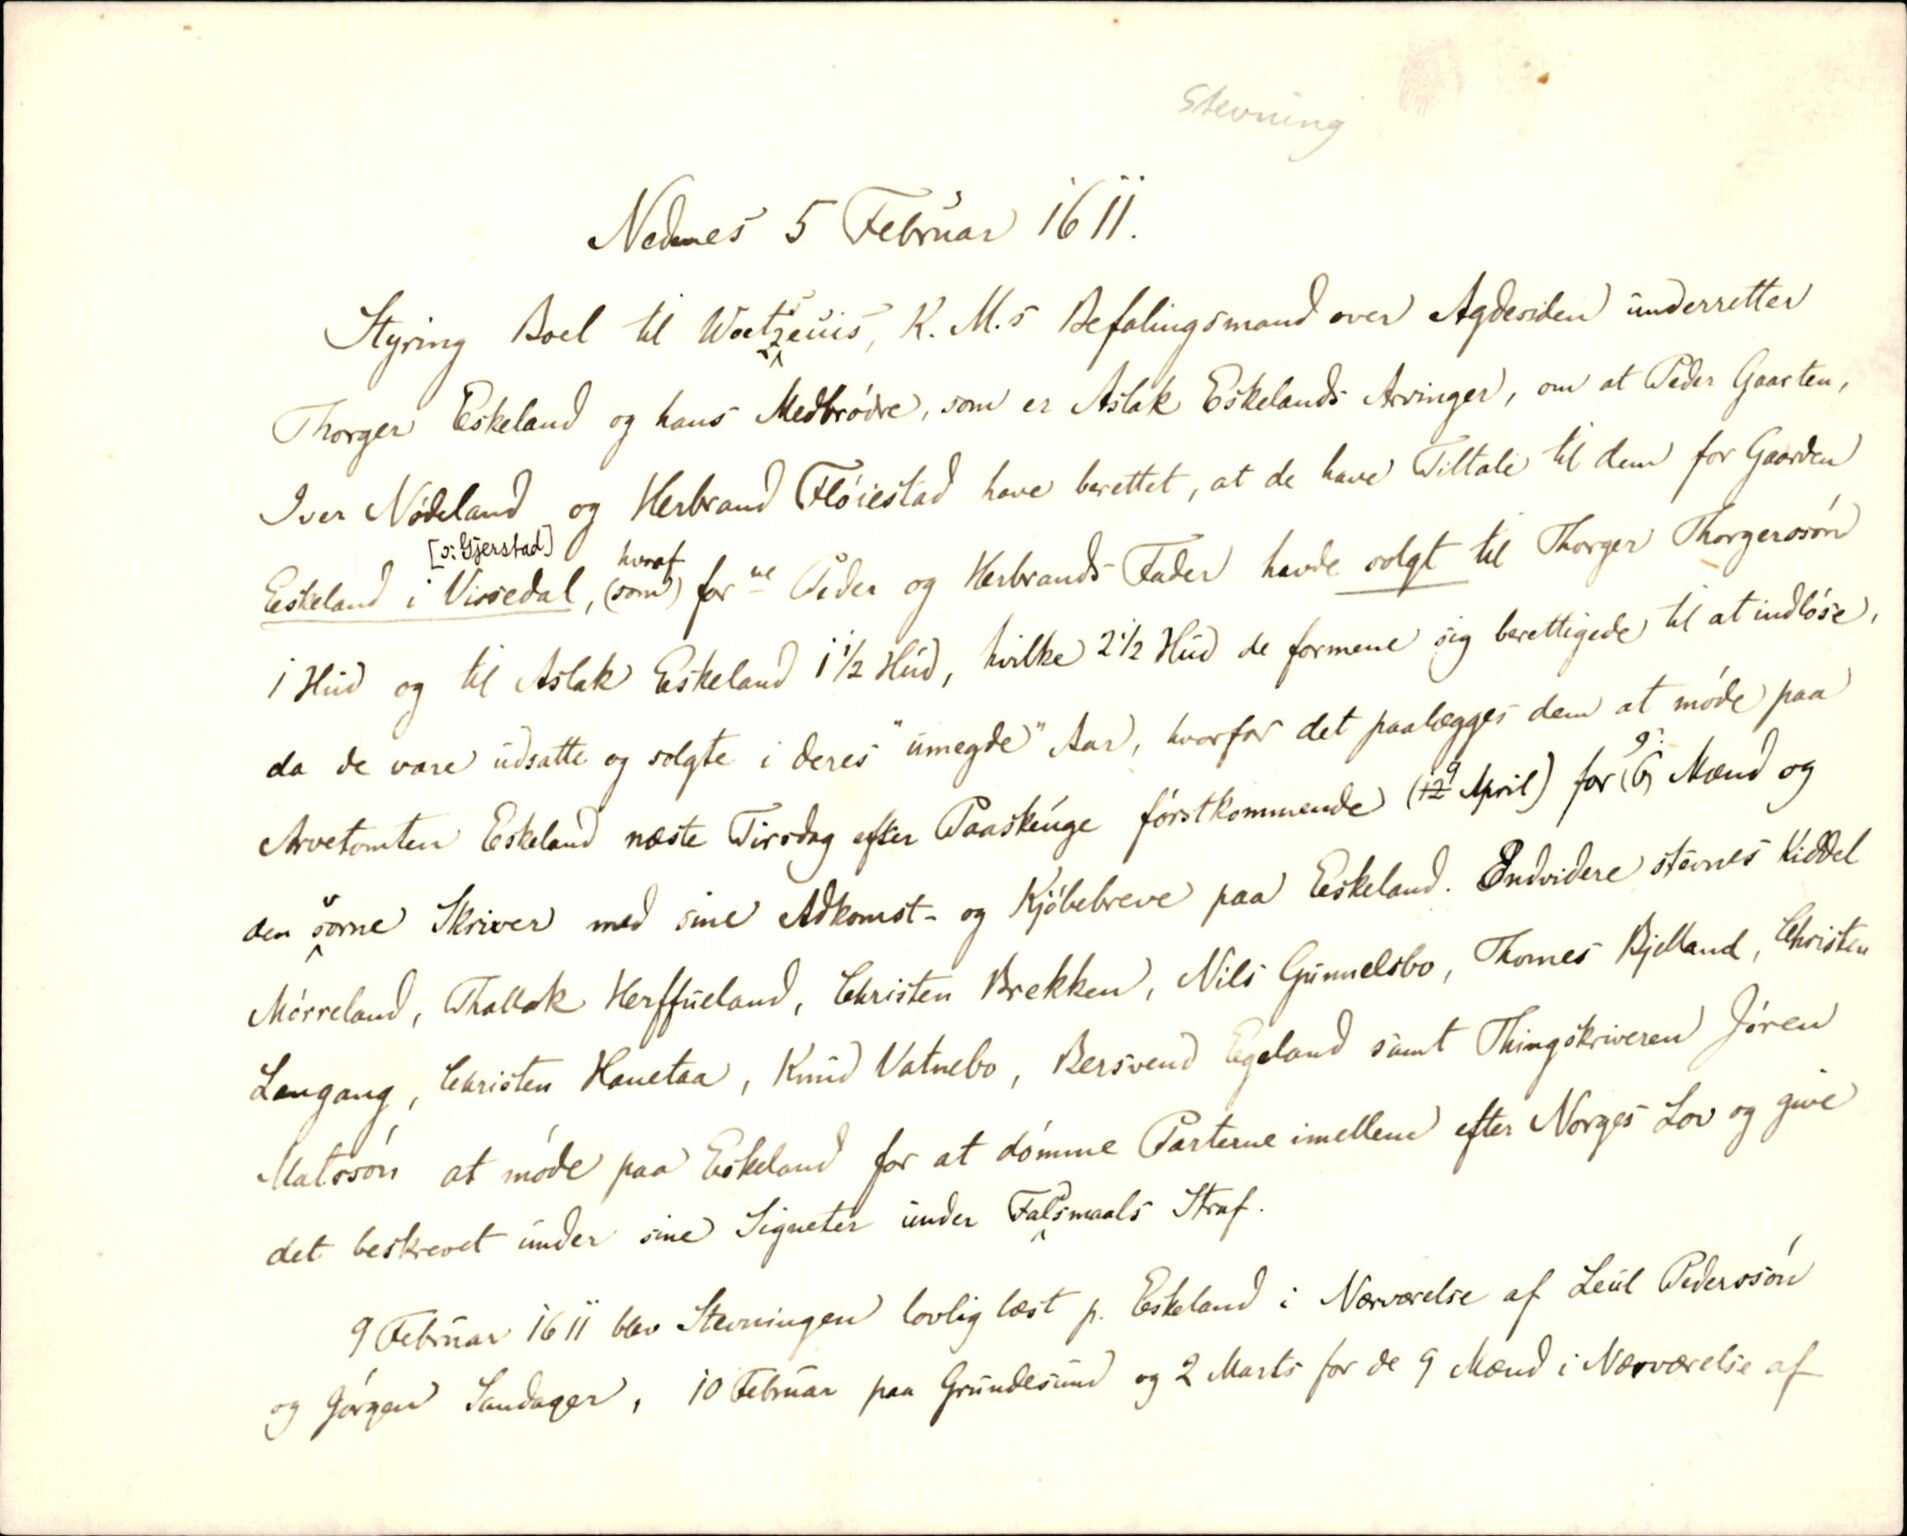 Stevning
Nedenes 5 Februar 1611.
Styring Boel til Woetzeuis, K. M.s Befalingsmand over Agdesiden underretter
Thorger Eskeland og hans Medbrødre, som er Aslak Eskelands Arvinger, om at Peder Gaarten,
Iver Nødeland og Herbrand Fløiestad have berettet, at de have Tiltale til dem for Gaarden
[ɔ: Gjerstad] hvoraf
Eskeland i Vissedal, (som) for ne Peder og Herbrands Fader havde solgt til Thorger Thorgerssøn
1 Hud og til Aslak Eskeland 1 1/2 Hud, hvilke 2 1/2 Hud de formene sig berettigede til at indløse,
da de vare udsatte og solgte i deres "umegde" Aar, hvorfor det paalægges dem at møde paa
Arvetomten Eskeland næste Tirsdag efter Paaskeuge førstkommende (12 9 April) for (6) 9: Mænd og
den sorne Skriver med sine Adkomst- og Kjøbebreve paa Eskeland. Endvidere stevnes Kiddel
Mørreland, Thallak Herffueland, Christen Brekken, Nils Gunnelsbo, Thomes Bjelland, Christen
Langang, Christen Hanetaa, Knud Vatnebo, Bersvend Egeland samt Thingskriveren Jøren
Matssøn at møde paa Eskeland for at dømme Parterne imellem efter Norges Lov og give
det beskrevet under sine Signeter under Falsmaals Straf.
9 Februar 1611 blev Stevningen lovlig læst p. Eskeland i Nærværelse af Leul Pederssøn
og Jørgen Sandager, 10 Februar paa Grundesund og 2 Marts for de 9 Mænd i Nærværelse af